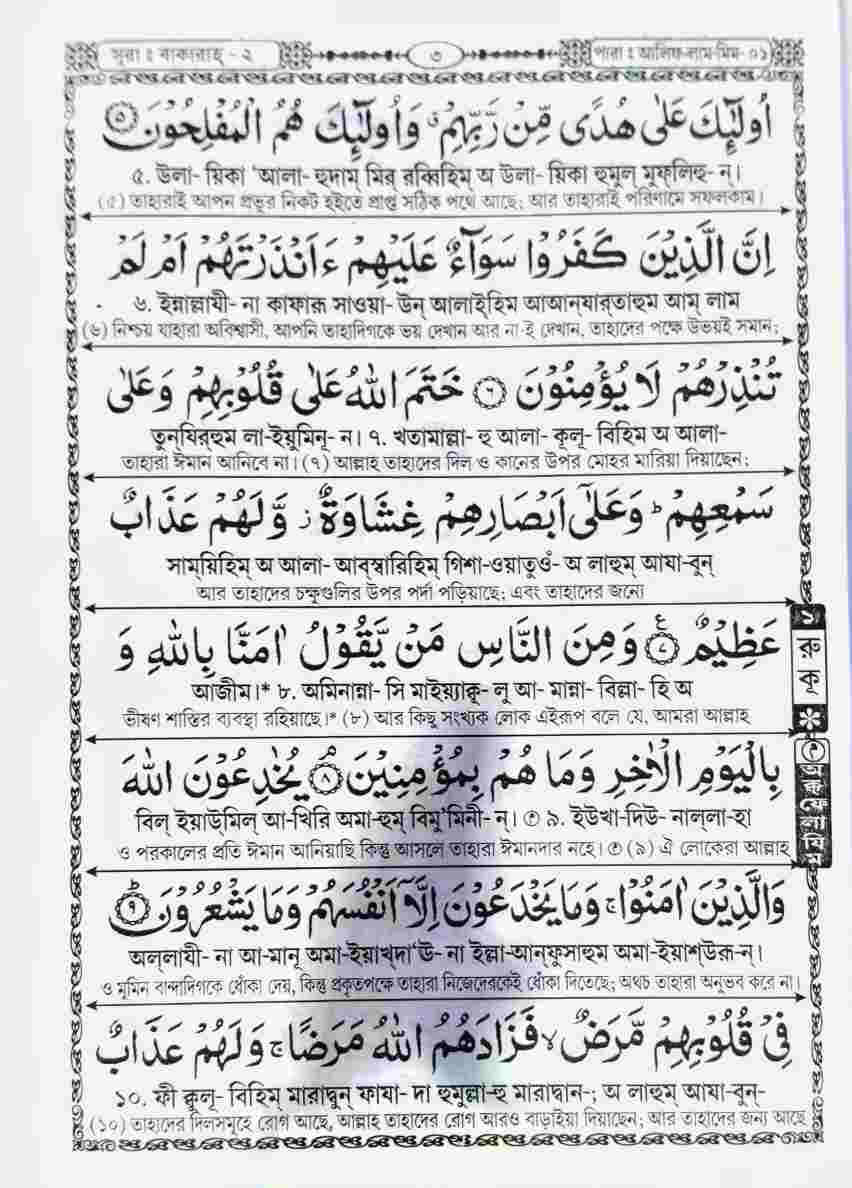 সূরা ঃ বাকারাহ্ - ২
৩
পারা ঃ আলিফ-লাম-মিম- ০১
اُولٰٓئِكَ عَلٰى هُدًى مِّنْ رَّبِّهِمْ ۗ وَاُولٰٓئِكَ هُمُ الْمُفْلِحُوْنَ ۝٥
৫. উলা- য়িকা 'আলা- হুদাম্ মির্ রব্বিহিম্ অ উলা- য়িকা হুমুল্ মুফ্লিহূ- ন্।
(৫) তাহারাই আপন প্রভুর নিকট হইতে প্রাপ্ত সঠিক পথে আছে; আর তাহারাই পরিণামে সফলকাম।
اِنَّ الَّذِيْنَ كَفَرُوْا سَوَآءٌ عَلَيْهِمْ ءَاَنْذَرْتَهُمْ اَمْ لَمْ
৬. ইন্নাল্লাযী- না কাফারূ সাওয়া- উন্ আলাইহিম আআন্‌যার্‌তাহুম আম্ লাম
(৬) নিশ্চয় যাহারা অবিশ্বাসী, আপনি তাহাদিগকে ভয় দেখান আর না-ই দেখান, তাহাদের পক্ষে উভয়ই সমান;
تُنْذِرْهُمْ لَا يُؤْمِنُوْنَ ۝٦ خَتَمَ اللّٰهُ عَلٰى قُلُوْبِهِمْ وَعَلٰى
তুন্‌যির্‌হুম লা-ইয়ুমিনূ- ন। ৭. খতামাল্লা- হু আলা- কুলূ- বিহিম অ আলা-
তাহারা ঈমান আনিবে না। (৭) আল্লাহ তাহাদের দিল ও কানের উপর মোহর মারিয়া দিয়াছেন;
سَمْعِهِمْ ؕ وَعَلٰٓى اَبْصَارِهِمْ غِشَاوَةٌ ز وَّلَهُمْ عَذَابٌ
সাম্‌য়িহিম্ অ আলা- আব্‌স্বারিহিম্ গিশা-ওয়াতুওঁ- অ লাহুম্ আযা-বুন্
আর তাহাদের চক্ষুগুলির উপর পর্দা পড়িয়াছে; এবং তাহাদের জন্যে
عَظِيْمٌ ۝٧ ع وَمِنَ النَّاسِ مَنْ يَّقُوْلُ اٰمَنَّا بِاللّٰهِ وَ
আজীম।* ৮. অমিনান্না- সি মাইয়্যাক্বূ- লু আ- মান্না- বিল্লা- হি অ
ভীষণ শাস্তির ব্যবস্থা রহিয়াছে।* (৮) আর কিছু সংখ্যক লোক এইরূপ বলে যে, আমরা আল্লাহ
১
রুকূ
بِالْيَوْمِ الْاٰخِرِ وَمَا هُمْ بِمُؤْمِنِيْنَ ۝٨ۘ يُخٰدِعُوْنَ اللّٰهَ
বিল্ ইয়াউমিল্ আ-খিরি অমা-হুম্ বিমু'মিনী- ন্। ৯. ইউখা-দিউ- নাল্লা-হা
ও পরকালের প্রতি ঈমান আনিয়াছি কিন্তু আসলে তাহারা ঈমানদার নহে। (৯) ঐ লোকেরা আল্লাহ
وَالَّذِيْنَ اٰمَنُوْا ۚ وَمَا يَخْدَعُوْنَ اِلَّآ اَنْفُسَهُمْ وَمَا يَشْعُرُوْنَ ۝٩ؕ
অল্লাযী- না আ-মানূ অমা-ইয়াখ্‌দা'ঊ- না ইল্লা-আন্‌ফুসাহুম অমা-ইয়াশ্‌উরূ-ন্।
ও মুমিন বান্দাদিগকে ধোঁকা দেয়, কিন্তু প্রকৃতপক্ষে তাহারা নিজেদেরকেই ধোঁকা দিতেছে; অথচ তাহারা অনুভব করে না।
فِىْ قُلُوْبِهِمْ مَّرَضٌ ۙ فَزَادَهُمُ اللّٰهُ مَرَضًا ۚ وَلَهُمْ عَذَابٌ
১০. ফী ক্বুলূ- বিহিম্ মারাদ্বুন্ ফাযা- দা হুমুল্লা-হু মারাদ্বান-; অ লাহুম্ আযা-বুন্-
(১০) তাহাদের দিলসমূহে রোগ আছে, আল্লাহ তাহাদের রোগ আরও বাড়াইয়া দিয়াছেন; আর তাহাদের জন্য আছে